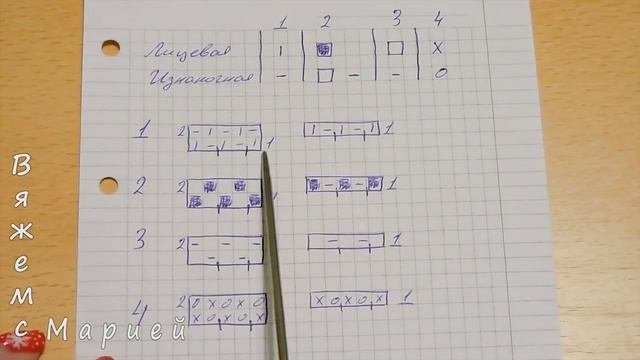 1 2 3 4
Лицевая | ■ □ X
Изнаночная - □ - - O
1 2 - ı - ı - ı - ı - ı 1
ı - ı - ı 1
2 2 ■ ■ ■ - ■ - ■ 1
■ ■ ■
3 2 - - - - - 1
- -
4 2 O X O X O X O X O X 1
X O X O X
Вяжем с
Марией